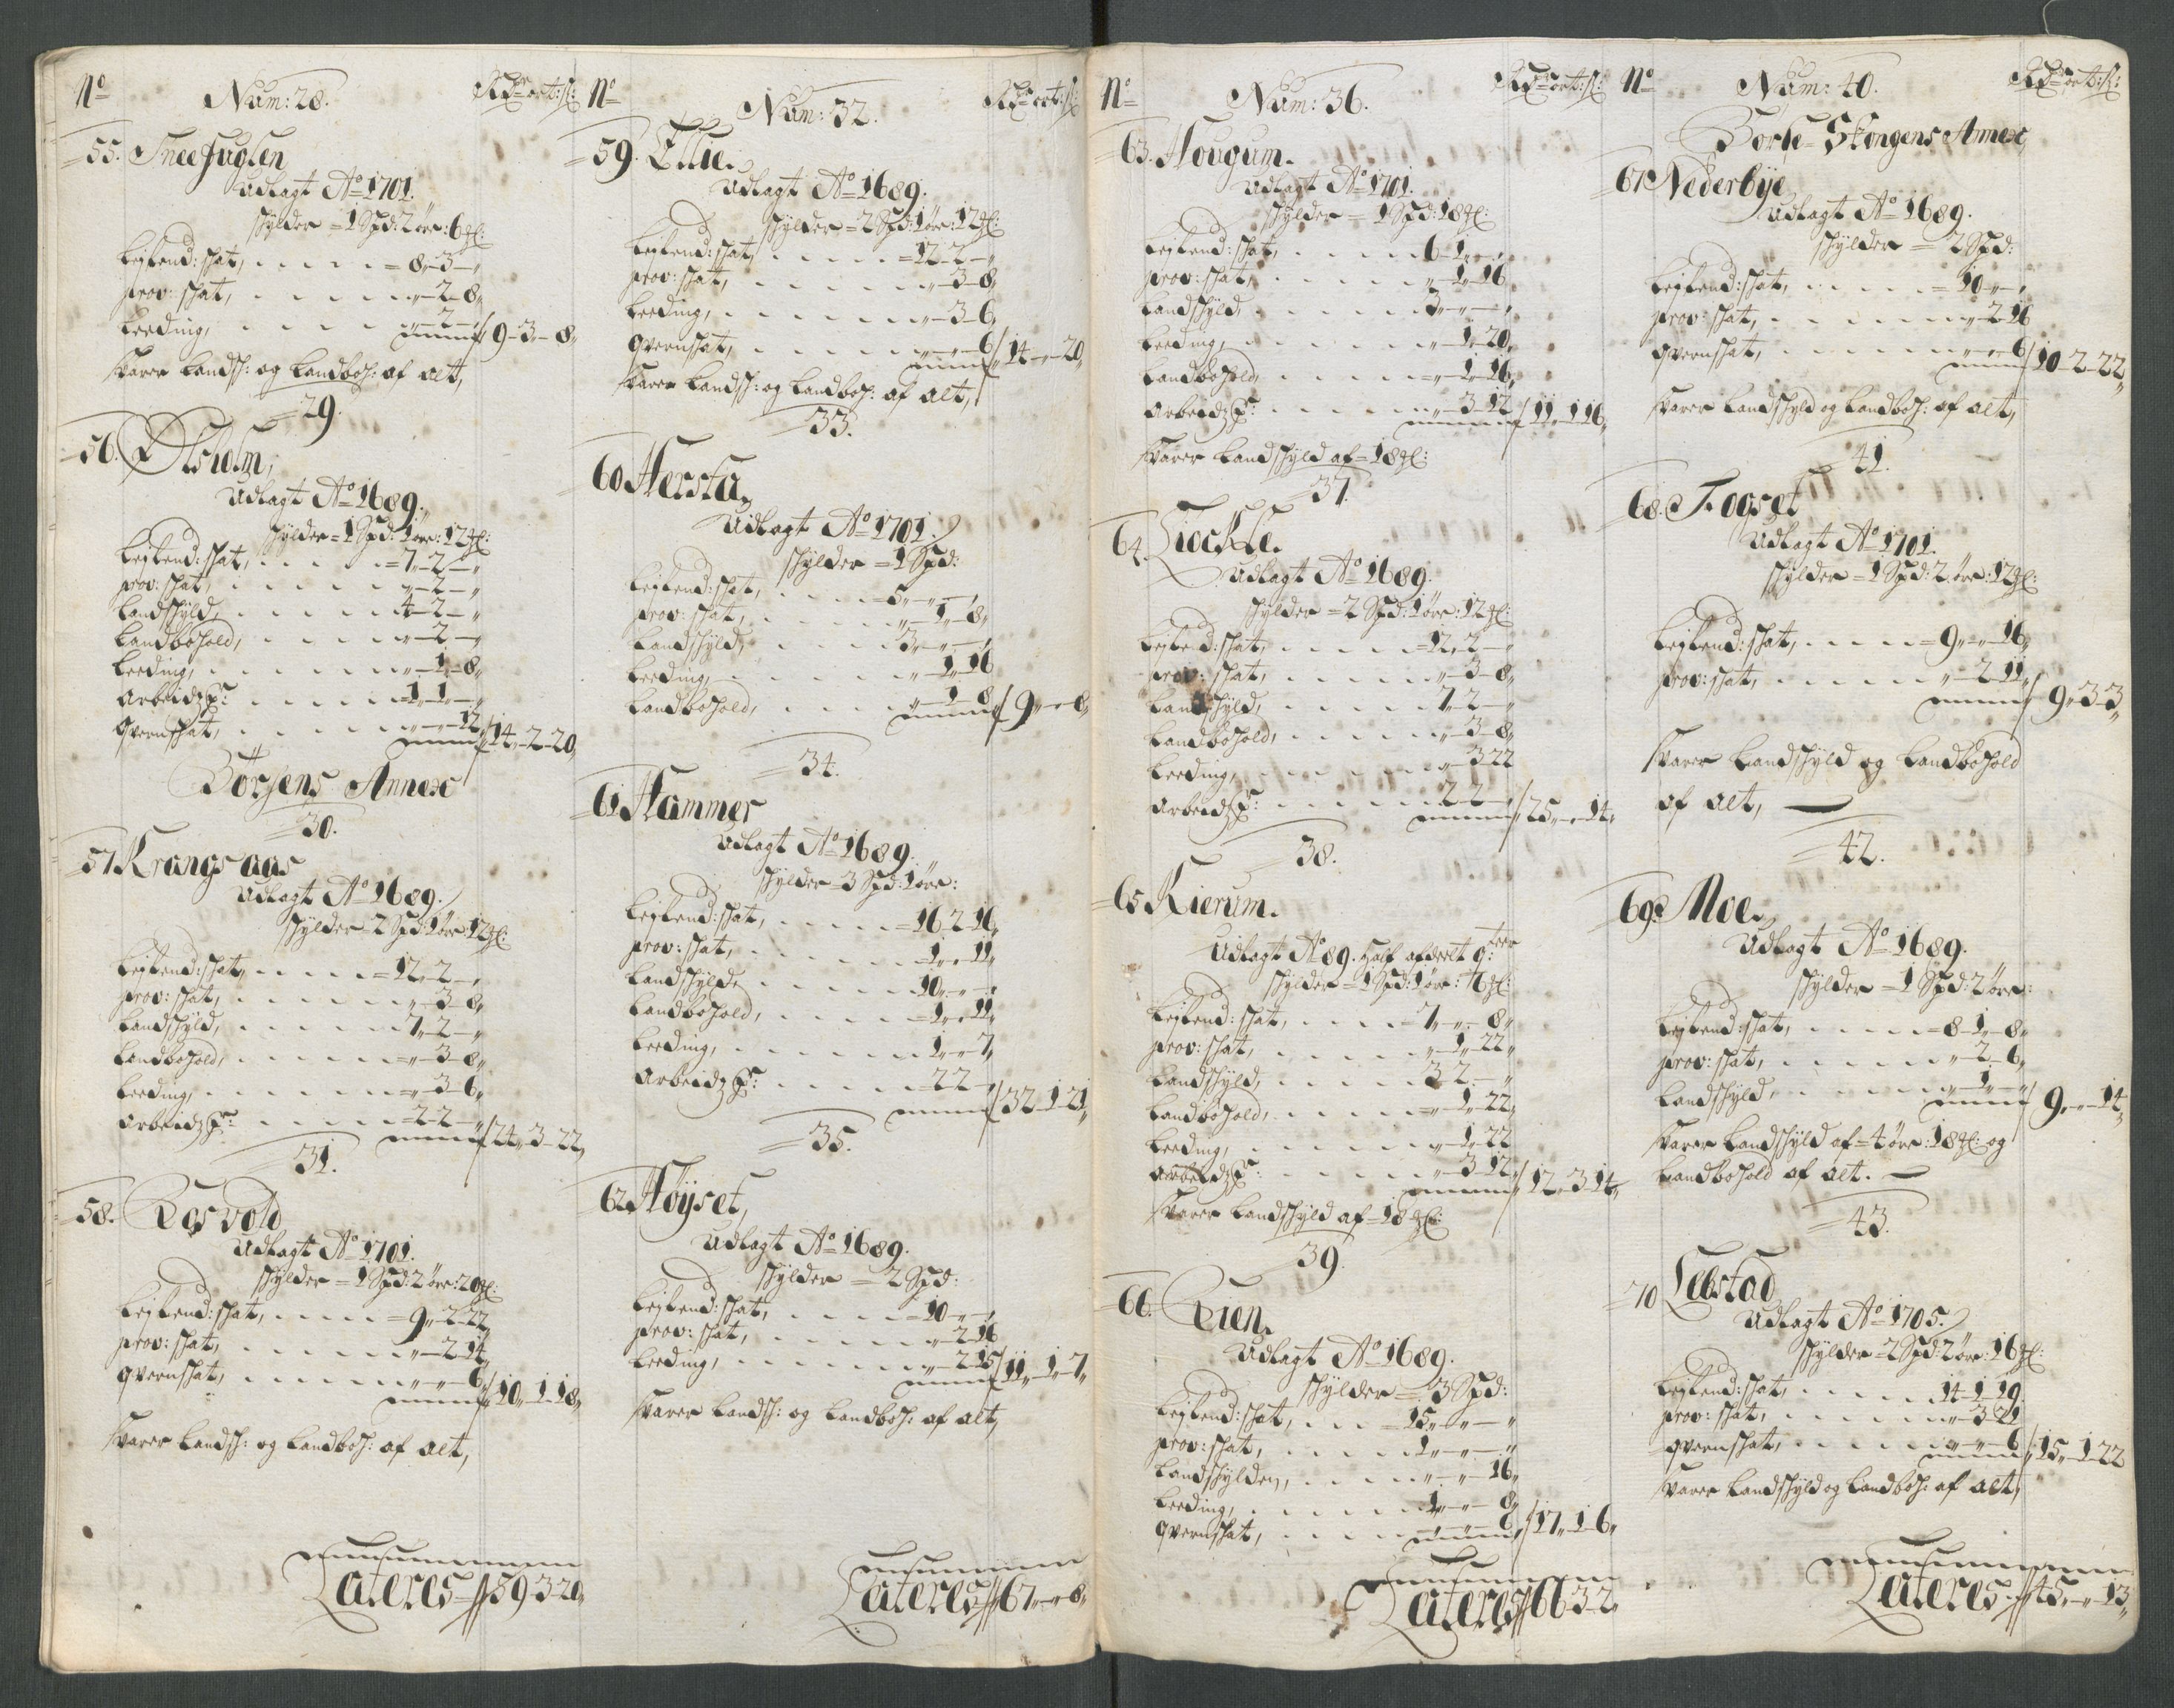 No Num: 28. Rdr ort: s:
55. Sneefuglen
Udlagt Ao 1701.
schylder = 1 Spd: 2 öre: 6 gl:
Leylend: schat, . . . . . = 8,, 3 – ,,
prov: schat, . . . . . . ,, – 2 – 8,,
Leeding, . . . . . . ,, – 2 – ,, / 9 – 3,, – 8,,
svarer Landsch: og Landboh: af alt,
29.
56. Olsholm,
Udlagt Ao 1689.
schylder = 1 Spd: 1 öre: 12 gl:
Leylend: schat, . . . . . = 7,, – 2 – ,,
prov: schat, . . . . . . ,, – 2 – ,,
Landschyld, . . . . . . 4 – 2 – ,,
Landbohold, . . . . . . ,, – 2 – ,,
Leeding, . . . . . . ,, – 1,, – 8,,
Arbeidz P: . . . . . = 1 – 1 – ,,
qvernschat, . . . . . . ,, – ,, – 12 / 14,, – 2 – 20,,
Börsens Annex
30.
57 Krangsaas
Udlagt Ao 1689.
schylder = 2 Spd: 1 öre: 12 gl:
Leylend: schat, . . . . = 12,, – 2 – ,,
prov: schat, . . . . . . ,, – 3 – 8,,
Landschyld, . . . . . . 7,, – 2 – ,,
Landbohold, . . . . . = ,, – 3 – 8,,
Leeding, . . . . . . = ,, – 3 – 6,,
Arbeidz P: . . . . . = 2 – 2 – ,, / 24,, – 3 – 22,,
31.
58. Rosvold
Udlagt Ao 1701.
schylder = 1 Spd: 2 öre: 20 gl:
Leylend: schat, . . . . = 9,, – 2 – 22,,
prov: schat, . . . . . . ,, – 2 – 14,,
qvernschat, . . . . . . ,, – ,, – 6,, / 10,, – 1 – 18,,
svarer Landsch: og Landboh: af alt,
Lateres // 59 – 3 – 20,,
No Num: 32. Rdr ort: s:
59. Ellie.
Udlagt Ao 1689.
schylder = 2 Spd: 1 öre: 12 gl:
Leylend: schat, . . . . . = 12 – 2 – ,,
prov: schat, . . . . . . ,, – 3 – 8,,
Leeding, . . . . . . ,, – 3 – 6,,
qvernschat, . . . . . . ,, – ,, – 6 / 14 – ,, – 20,,
svarer Landsch: og Landboh: af alt,
33.
60 Hersta,
Udlagt Ao 1701.
schylder = 1 Spd:
Leylend: schat, . . . . = 5,, – ,, – ,,
prov: schat, . . . . . . ,, – 1 – 8,,
Landschyld, . . . . . 3,, – ,, – ,,
Leeding, . . . . . . ,, – 1 – 16
Landbohold, . . . . . ,, – 1 – 8 / 9,, – ,, – 8,,
34.
61 Hammer
Udlagt Ao 1689.
schylder = 3 Spd: 1 öre:
Leylend: schat, . . . . . = 16 – 2 – 16,,
prov: schat, . . . . . . = 1,, – ,, – 11,,
Landschyld, . . . . . . 10,, – ,, – ,,
Landbohold, . . . . . = 1,, – ,, – 11,,
Leeding, . . . . . . 1,, – ,, – 7,,
Arbeidz P: . . . . . = 2 – 2 – ,, / 32 – 1 – 21,,
35.
62. Höyset,
Udlagt Ao 1689.
schylder = 2 Spd:
Leylend: schat, . . . . = 10 – ,, – ,,
prov: schat, . . . . . . ,, – 2 – 16
Leeding, . . . . . . ,, – 2 – 15 / 11,, – 1,, – 7,,
svarer Landsch: og Landboh: af alt,
Lateres // 67,, – ,, – 8,,
No Num: 36. Rdr ort: s:
63. Hougum.
Udlagt Ao 1701.
schylder = 1 Spd: 18 gl:
Leylend: schat, . . . . . 6 – 1,, – ,,
prov: schat, . . . . . . ,, – 1,, – 16
Landschyld, . . . . . 3,, – ,, – ,,
Leeding, . . . . . . ,, – 1,, – 20,,
Landbohold, . . . . . = ,, – 1,, – 16,,
Arbeidz P: . . . . . ,, – 3 – 12 / 11,, – 1 – 16,,
svarer Landschyld af = 18 gl:
37.
64. Liockle.
Udlagt Ao 1689.
schylder = 2 Spd: 1 öre: 12 gl:
Leylend: schat, . . . . . = 12,, – 2 – ,,
prov: schat, . . . . . . ,, – 3 – 8,,
Landschyld, . . . . . 7,, – 2 – ,,
Landbohold, . . . . . ,, – 3 – 8,,
Leeding, . . . . . . ,, – 3 – 22
Arbeidz P: . . . . . 2 – 2 – ,, / 25,, – ,, – 14,,
38.
65 Kierum.
Udlagt Ao 89. Half afdeelt
schylder = 1 Spd: 1 öre: 6 gl:
Leylend: schat, . . . . = 7,, – ,, – 8,,
prov: schat, . . . . . . ,, – 1,, – 22,,
Landschyld, . . . . . 3 – 2 – ,,
Landbohold, . . . . . = ,, – 1,, – 22,,
Leeding, . . . . . . ,, – 1,, – 22
Arbeidz P: . . . . . ,, – 3 – 12,, / 12,, – 3 – 14,,
svarer Landschyld af = 18 gl:
39.
66. Eien.
Udlagt Ao 1689.
schylder = 3 Spd:
Leylend: schat, . . . = 15,, – ,, – ,,
prov: schat, . . . . . 1,, – ,, – ,,
Landschylden, . . . . ,, – ,, – 16,,
Leeding, . . . . . . 1,, – ,, – 8,,
qvernschat, . . . . . ,, – ,, – 6 / 17,, – 1 – 6,,
Lateres // 66 – 3 – 2,,
No Num: 40. Rdr ort: s:
Börse-Skongens Annex
67. Nederbye
Udlagt Ao 1689.
schylder = 2 Spd:
Leylend: schat, . . . . . = 10 – ,, – ,,
prov: schat, . . . . . . ,, – 2 – 16
qvernschat, . . . . . . ,, – ,, – 6 / 10 – 2 – 22,,
svarer Landschyld og Landboh: af alt,
41.
68. Fogset
Udlagt Ao 1701.
schylder = 1 Spd: 2 öre: 12 gl:
Leylend: schat, . . . . = 9,, – ,, – 16,,
prov: schat, . . . . . ,, – 2 – 11,, / 9,, – 3 – 3,,
svarer Landschyld og Landbohold
af alt,
42.
69. Moe.
Udlagt Ao 1689.
schylder = 1 Spd: 2 öre:
Leylend: schat, . . . . = 8 – 1,, – 8,,
prov: schat, . . . . . . ,, – 2 – 6,,
Landschyld, . . . . . ,, – 1,, – ,, / 9,, – ,, – 14,,
svarer Landschyld af = 4 öre: 18 gl: og
Landbohold af alt.
43.
70 Lebstad
Udlagt Ao 1705.
schylder = 2 Spd: 2 öre: 16 gl:
Leylend: schat, . . . . . 14 – 1 – 19
prov: schat, . . . . . . ,, – 3 – 21
qvernschat, . . . . . . ,, – ,, – 6 / 15,, – 1 – 22
svarer Landschyld og Landboh: af alt,
Lateres // 45,, – ,, – 13,,